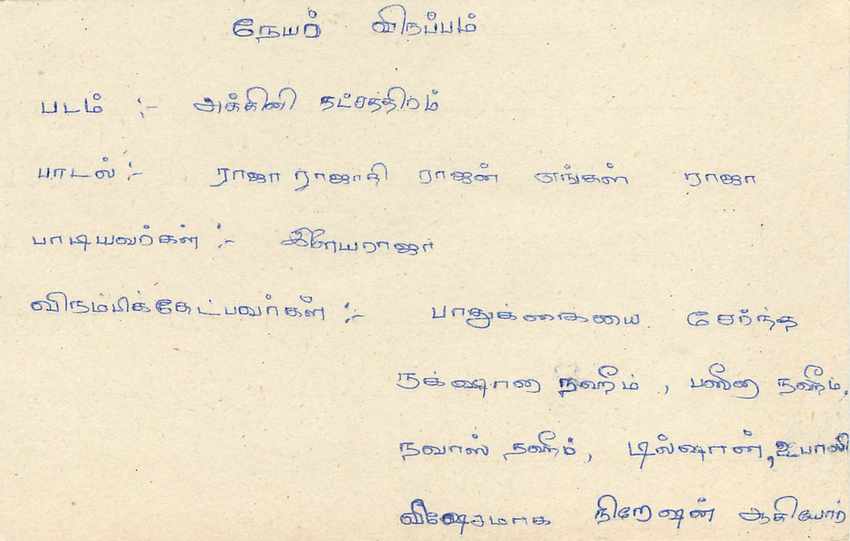 நேயர் விருப்பம்
படம் :- அக்கினி நட்சத்திரம்
பாடல் :- ராஜா ராஜாதி ராஜன் எங்கள் ராஜா
பாடியவர்கள் :- இளையராஜா
விரும்பிக்கேட்பவர்கள் :- பாதுக்கையை சேர்ந்த
நக்ஷானா நஹீம் , பஸீனா நஹீம்,
நவாஸ் நஹீம், டில்ஷான், உபாலி
விஷேசமாக நிறேஷன் ஆகியோர்